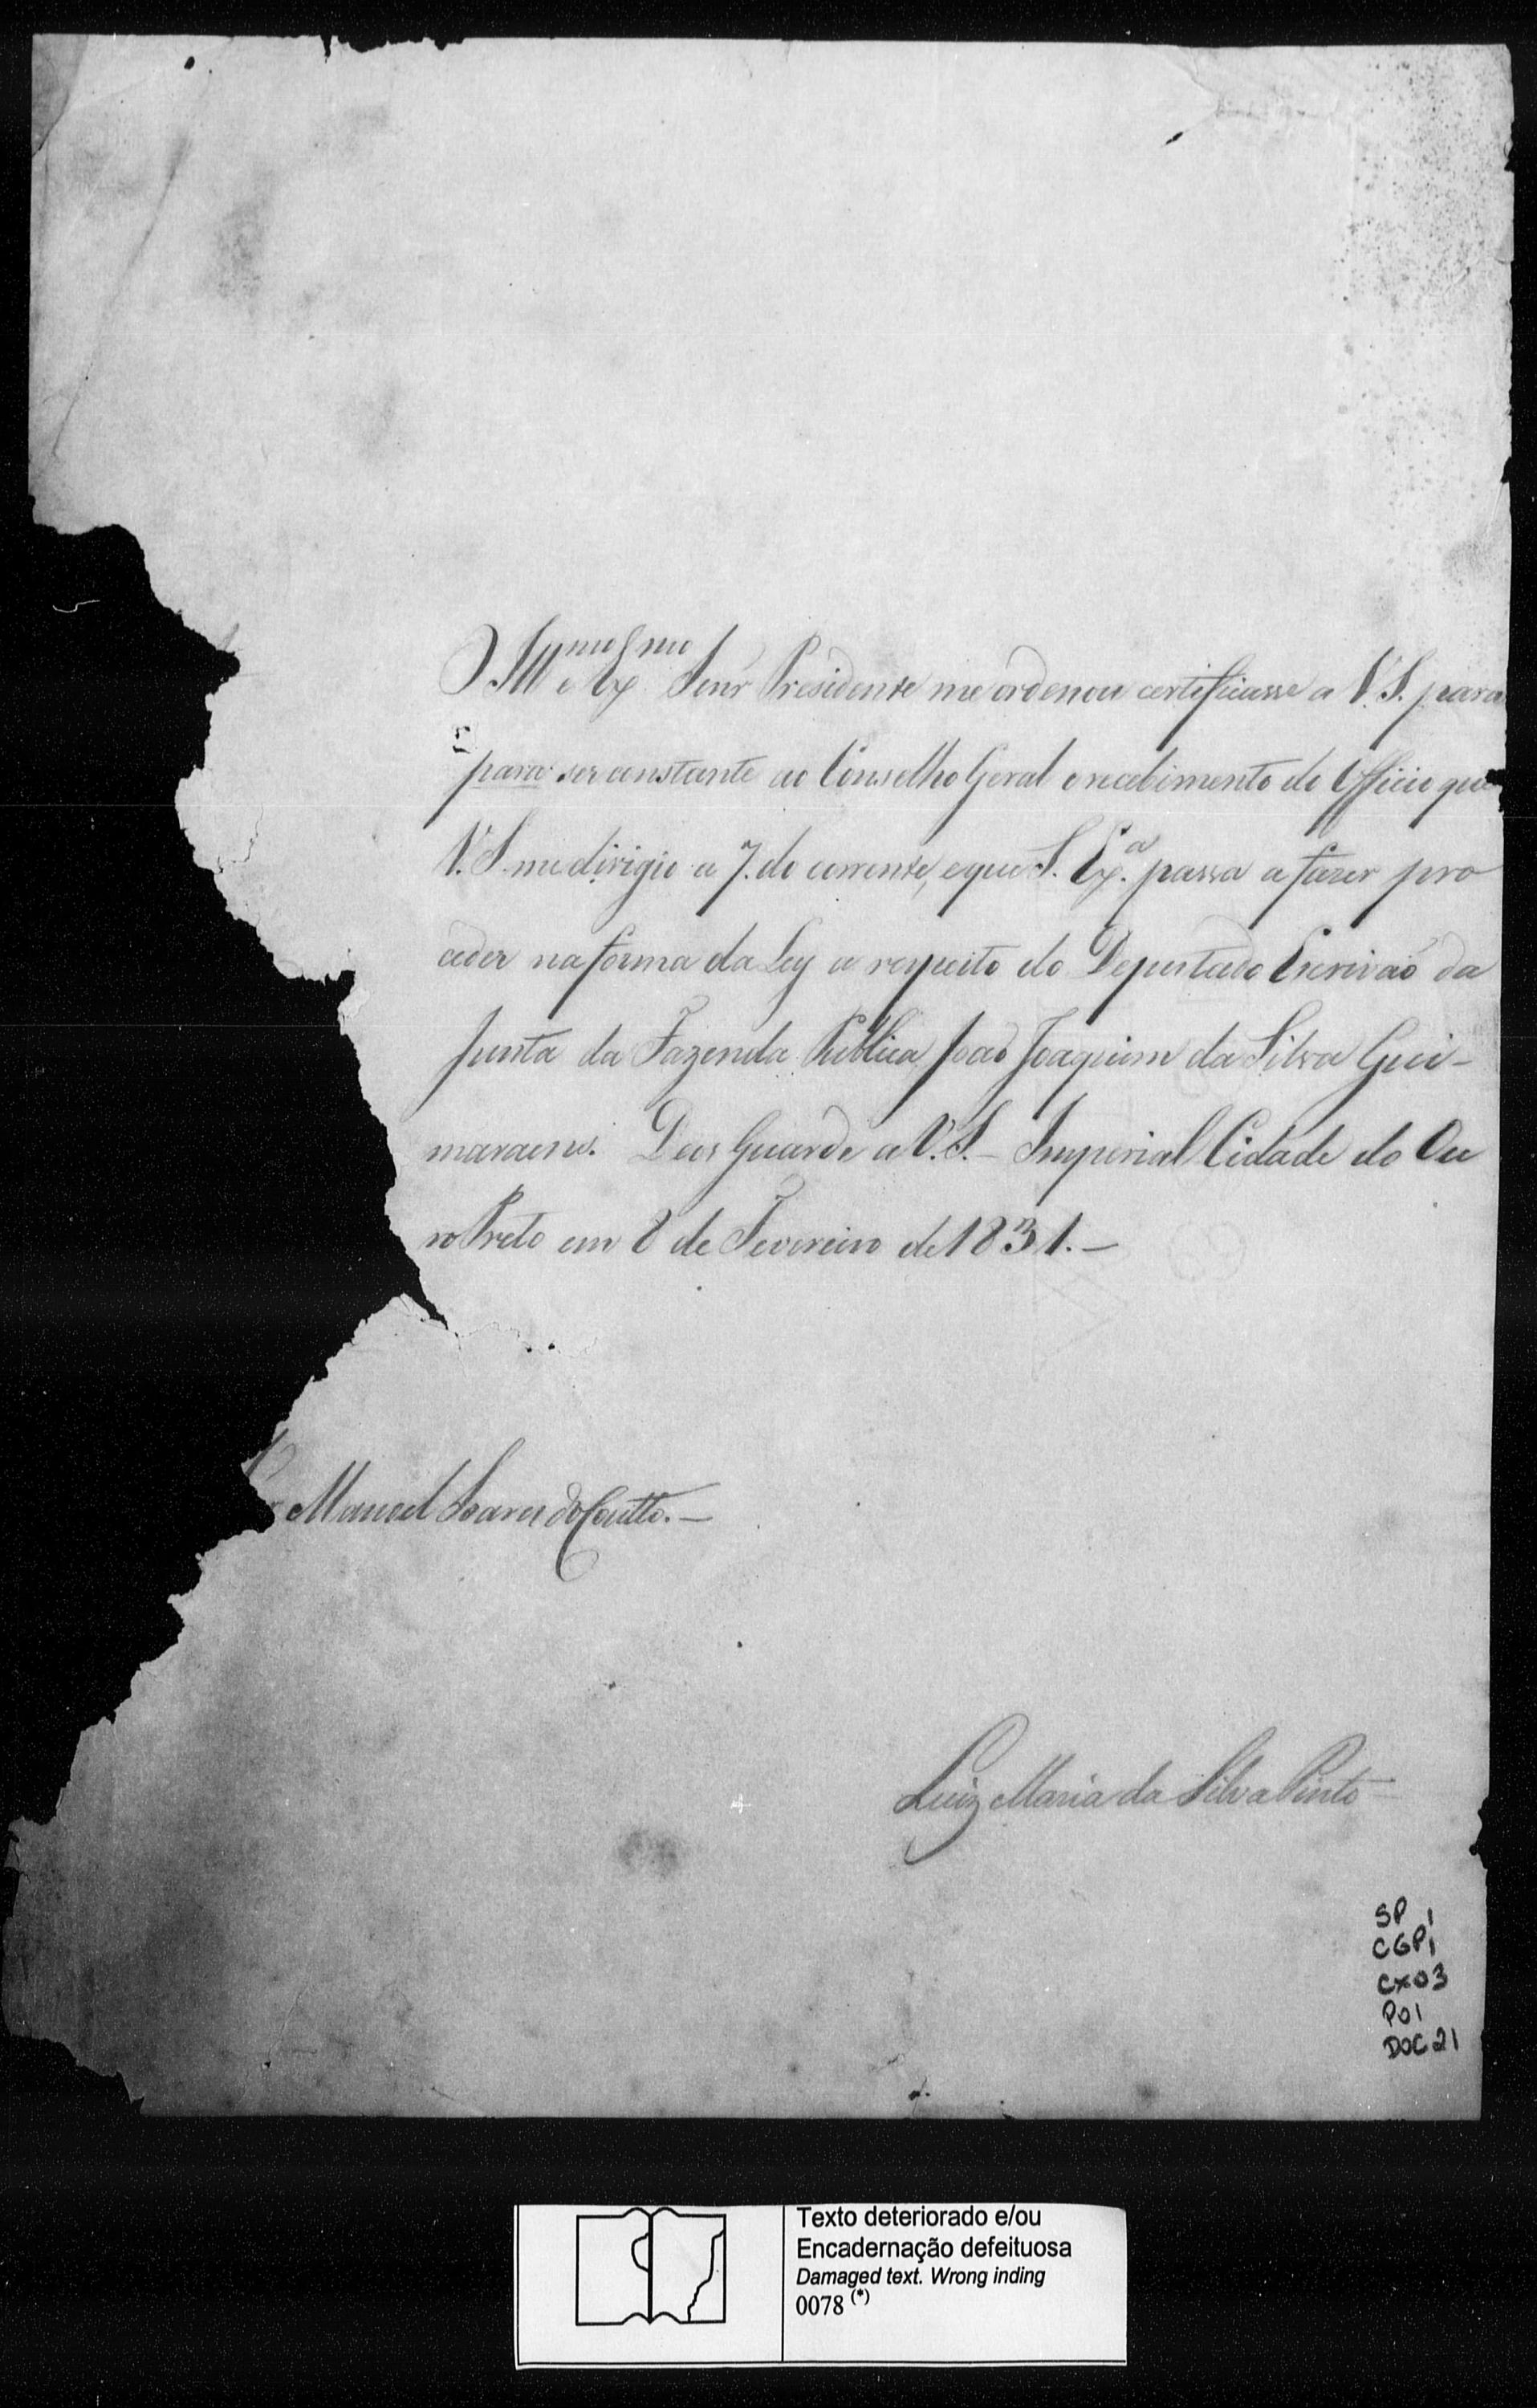 O Ill.mo e Ex.mo Senr Presidente me ordenou certificasse a V. S. para
para ser constante ao Conselho Geral o recebimento do Officio que
V. S. me dirigio a 7. do corrente, e que S. Ex.a passa a fazer pro
ceder na forma da Ley a respeito do Deputado Escrivaõ da
Junta da Fazenda Publica Joaõ Joaquim da Silva Gui-
maraens. Deos Guarde a V. S. - Imperial Cidade do Ou
ro Preto em 8 de Fevereiro de 1831. -
Manoel Soares do Coutto. -
Luiz Maria da Silva Pinto -
SP 1
CGP1
CX03
P01
DOC 21
Texto deteriorado e/ou
Encadernação defeituosa
Damaged text. Wrong inding
0078 (*)